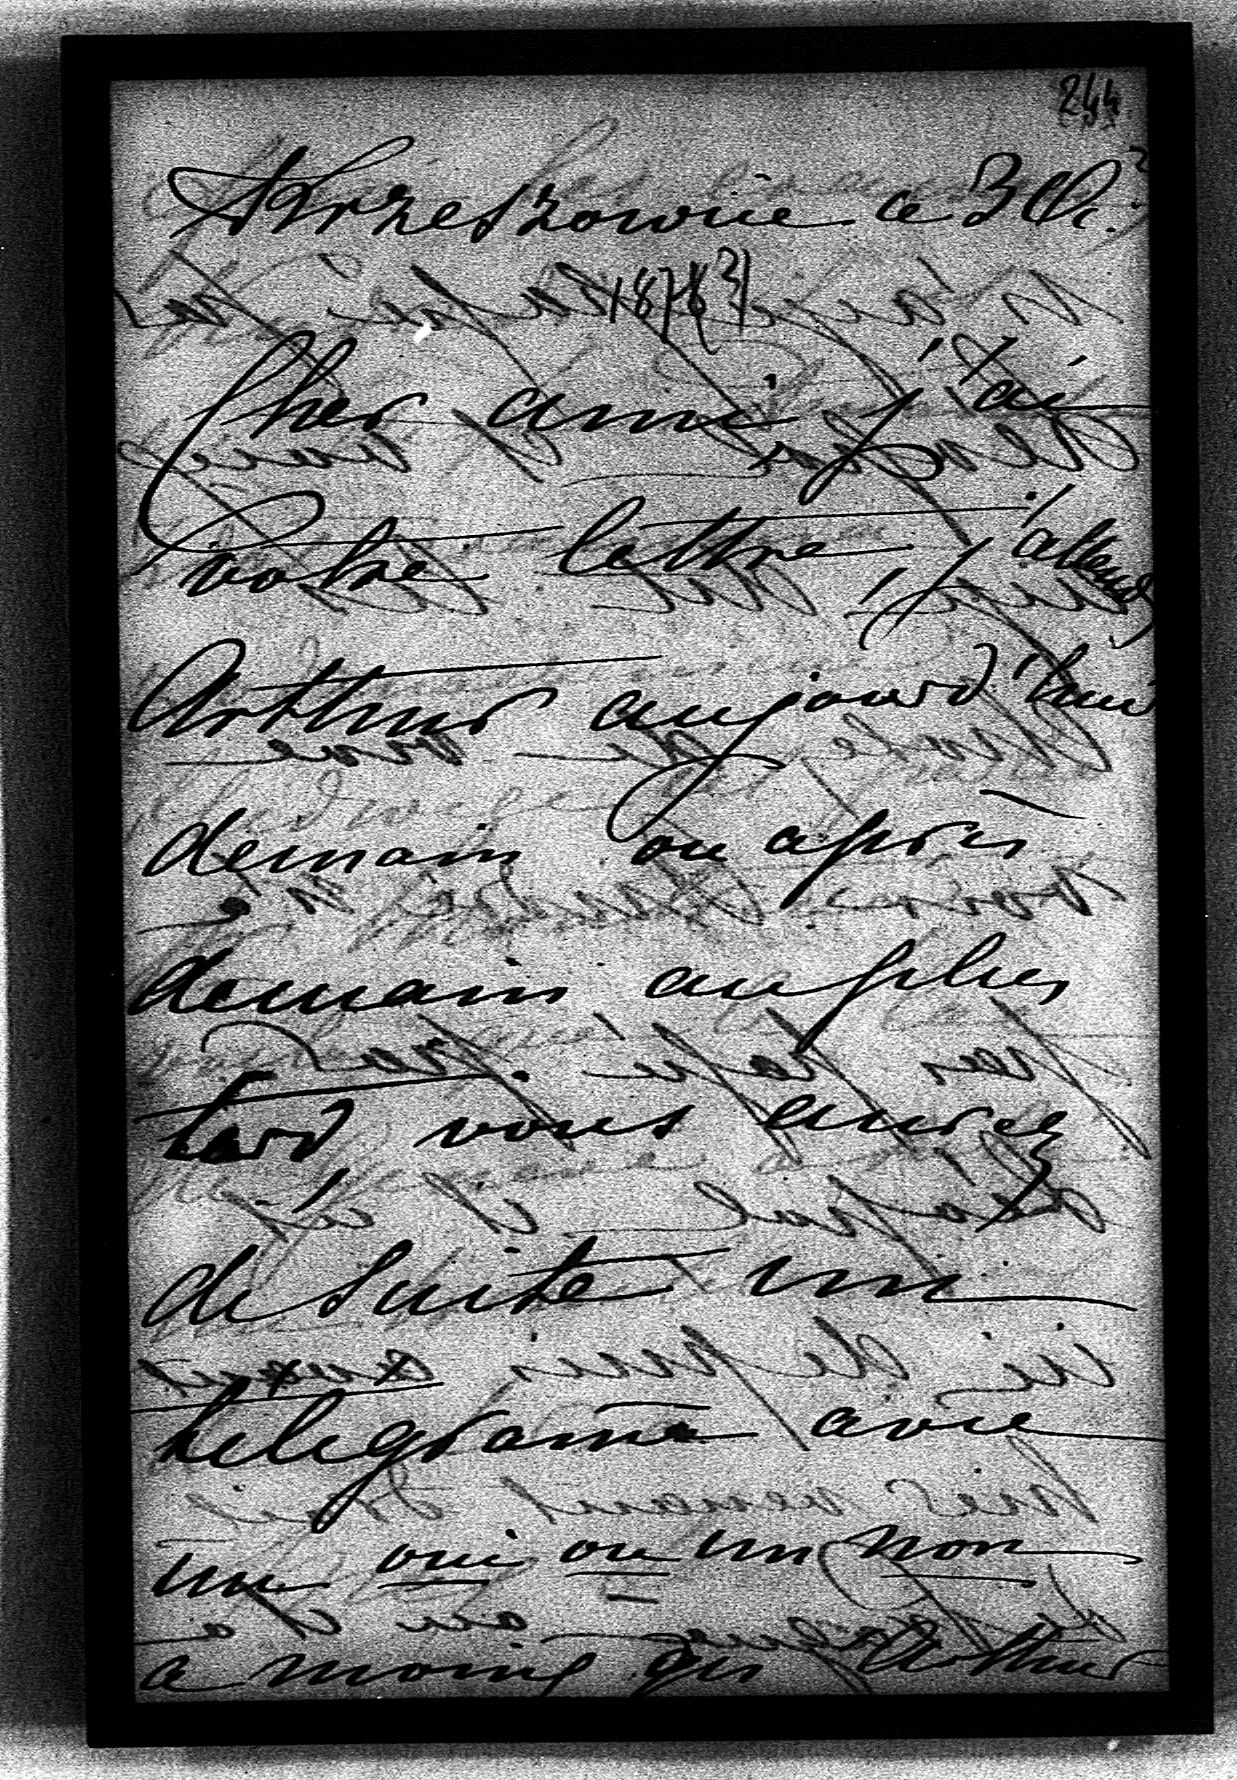 244
Krzeszowice ce 3 8.?
1878?
Cher ami j'ai
votre lettre, j'attends
Arthur aujourd'hui
demain ou après
demain au plus
tard, vous aurez
de suite un
telegrame avec
un oui ou un non
a moins qu Arthur